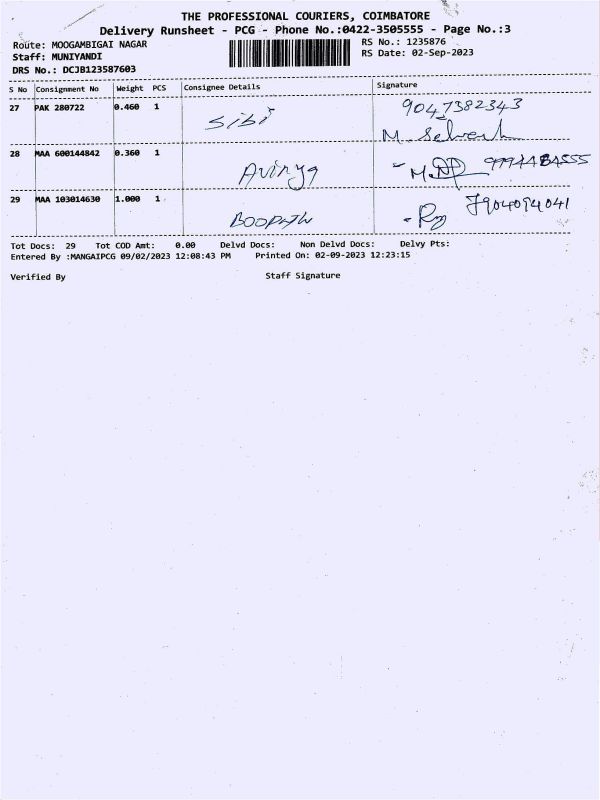 THE PROFESSIONAL COURIERS, COIMBATORE
Delivery Runsheet - PCG - Phone No.:0422-3505555 - Page No.:3
Route: MOOGAMBIGAI NAGAR
RS No.: 1235876
Staff: MUNIYANDI
RS Date: 02-Sep-2023
DRS No.: DCJB123587603
S No Consignment No Weight PCS Consignee Details Signature
27 PAK 280722 0.460 1 Sibi 9047382343
M. Selvesh
28 MAA 600144842 0.360 1 Avinya
29 MAA 103014630 1.000 1 7904094041
Tot Docs: 29 Tot COD Amt: 0.00 Delvd Docs: Non Delvd Docs: Delvy Pts:
Entered By :MANGAIPCG 09/02/2023 12:08:43 PM Printed On: 02-09-2023 12:23:15
Verified By Staff Signature